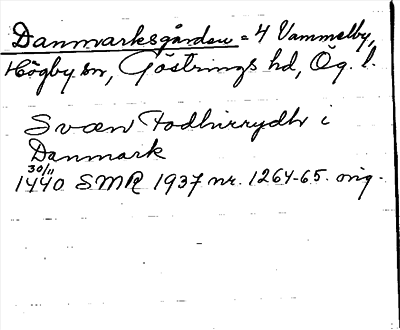 Danmarksgården = 4 Vammelby,
Högby sn, Göstrings hd, Ög. l.
Swæn Fodhirrydh i
Danmark
30/11
1440 SMR 1937 nr. 1264-65. orig.